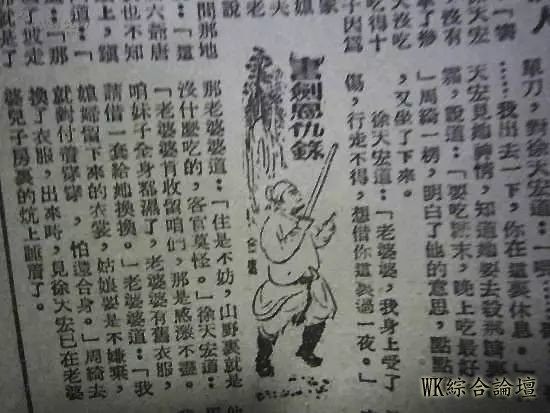 徐天宏
沒有
大沒吃
吃得十
子因為
間那地
六爺唐
也不知
道：「那
單刀，對徐天宏道：「
……我出去一下，你在這裏休息。」
天宏見她神情，知道她要去殺
霜，說道：「要吃　末，晚上吃最好
」周綺一楞，明白了他的意思，點點
，又坐了下來。
徐天宏道：「老婆婆，我身上受了
傷，行走不得，想借你這裏過一夜。」
書劍恩仇錄
那老婆婆道：「住是不妨，山野裏就是
沒什麼吃的，客官莫怪。」徐天宏道：
「老婆婆肯收留咱們，那是感激不盡。
咱妹子全身都濕了，老婆婆有舊衣服，
請借一套給她換換。」老婆婆道：「我
媳婦留下來的衣裳，姑娘要是不嫌棄，
就對付着穿穿，怕還合身。」周綺去
換了衣服，出來時，見徐天宏已在老婆
婆兒子房裏的炕上睡着了。
WK綜合論壇